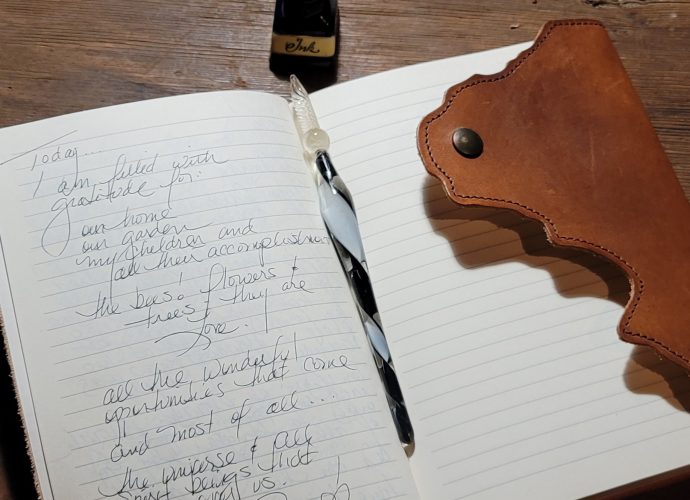 Ink
Today...
I am filled with
gratitude for:
our home
our garden
my children and
all their accomplishments
the bees! flowers &
trees & they are
love.
all the wonderful
opportunities that come
and most of all...
the universe & all
beings that
us.